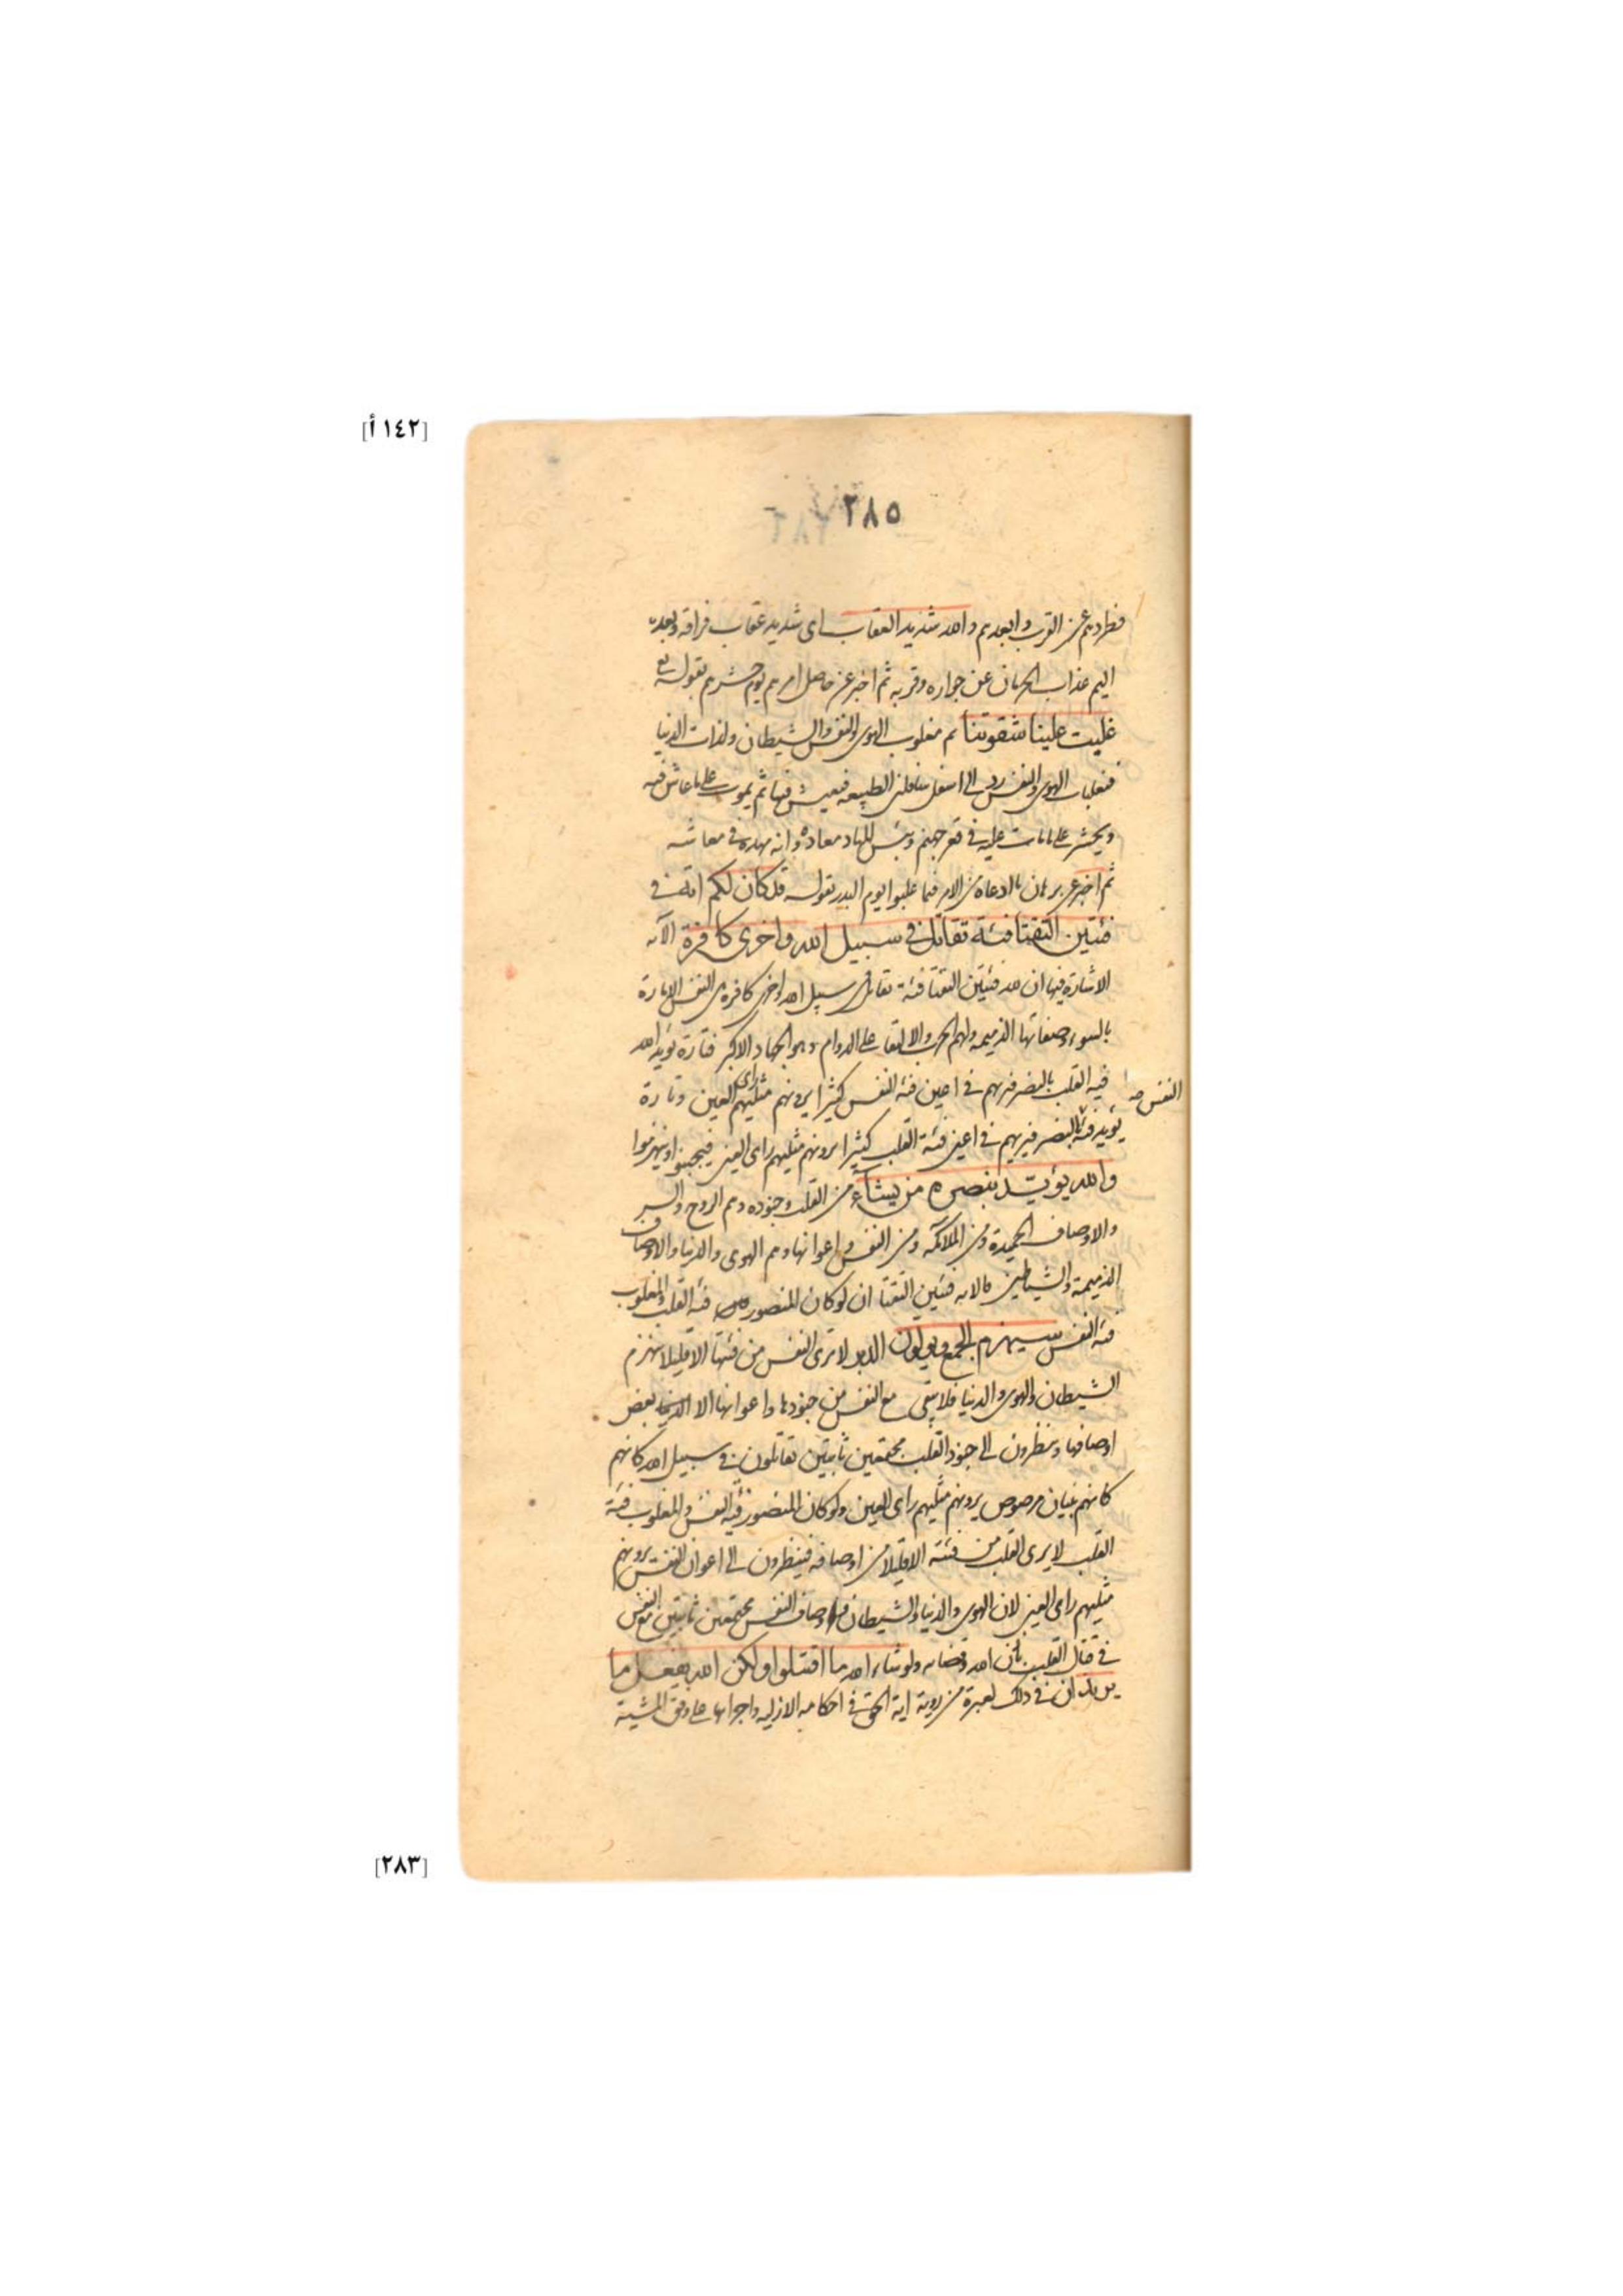 [١٤٢ أ]
٢٨٥
فطردهم عن القرب وابعدهم والله شديد العقاب اى شديد عقاب فراقه وبعده
اليم عذاب الحرمان عن جواره وقربه ثم اخبر عن حاصل امرهم يوم حشرهم بقوله تع
غلبت علينا شقوتنا ثم مغلوب الهوى والنفس والشيطان ولذات الدنيا
فغلبات الهوى والنفس رد الى اسفل سافلين الطبيعه فيعيش فيها ثم يموت على ما عاش فيه
ويحشر على ما مات عليه فى قعر جهنم وبئس المهاد معاده وانه مهده فى معاشه
ثم اخبر عن برهان ما ادعاه من الامر فيما غلبوا يوم البدر بقوله قد كان لكم اية فى
فئتين التقتا فئة تقاتل فى سبيل الله واخرى كافرة الآيه
الاشارة فيها ان لله فئتين التقتا فئة تقاتل فى سبيل الله واخرى كافرة من النفس الامارة
بالسوء وصفاتها الذميمه ولهم الحرب والالتقا على الدوام وهو الجهاد الاكبر فتارة يؤيد الله
فيه القلب بالنصر فيريهم فى اعين فئة النفس كثيرا يرونهم مثليهم راى العين وتارة
النفس صح
يؤيد فئة بالنصر فيريهم فى اعين فئة القلب كثيرا يرونهم مثليهم راى العين فيجبنوا وينهزموا
والله يؤيد بنصره من يشاء من القلب وجنوده وهم الروح والسر
والاوصاف الحميدة ومن الملائكه ومن النفس واعوانها وهم الهوى والدنيا والاوصاف
الذميمة والشياطين فالايه فئتين التقتا ان لو كان المنصور فئة القلب والمغلوب
فئة النفس سيهزم الجمع ويولون الدبر لا ترى النفس من فئتها الا قليلا ينهزم
الشيطان والهوى والدنيا فلا يبقى مع النفس من جنودها واعوانها الا بعض
اوصافها وينظرون الى جنود القلب مجتمعين ثابتين تقاتلون فى سبيل الله كانهم
كانهم بنيان مرصوص يرونهم مثليهم راى العين ولو كان المنصور فئة النفس والمغلوب فئة
القلب لا يرى القلب من فئته الا قليلا من اوصافه فينظرون الى اعوان النفس يرونهم
مثليهم راى العين لان الهوى والدنيا والشيطان واوصاف النفس مجتمعين ثابتين مع النفس
فى قتال القلب باذن الله وقضائه ولو شاء الله ما اقتتلوا ولكن الله يفعل ما
يريد ان فى ذلك لعبرة من روية اية الحق فى احكامه الازليه واجرائها على وفق المشية
[٢٨٣]